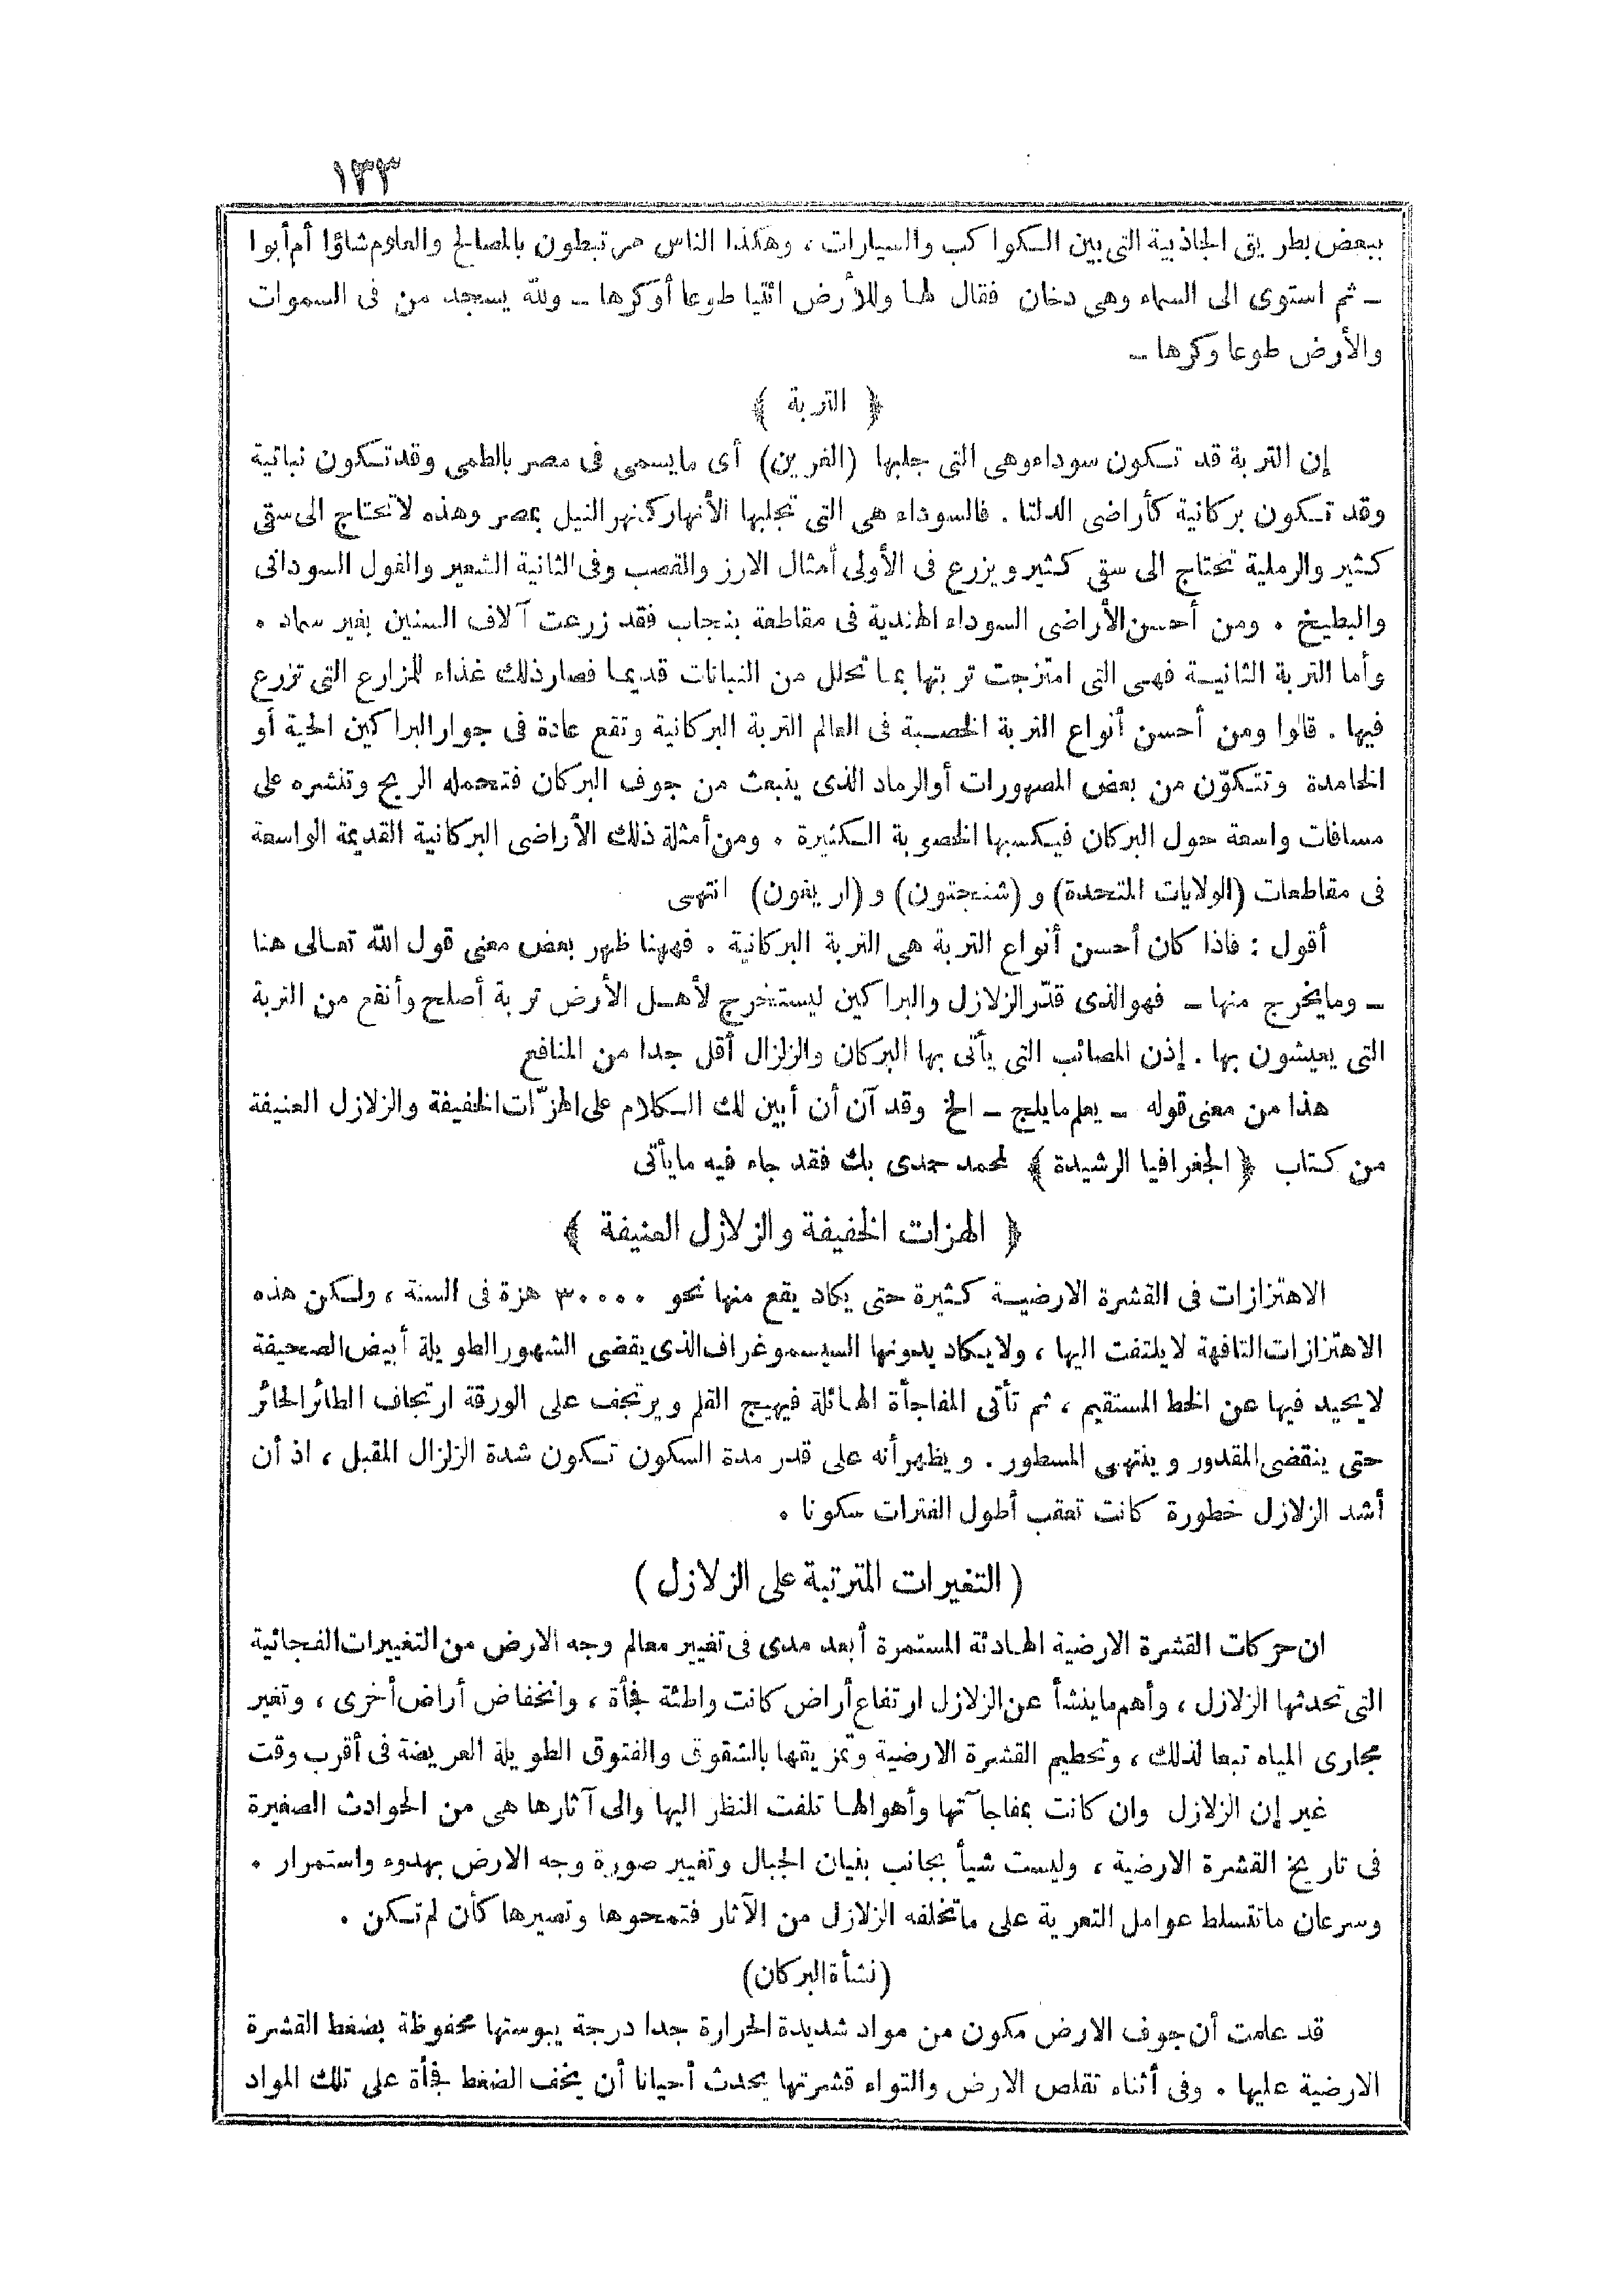 ١٣٣
ببعض بطريق الجاذبية التى بين الكواكب والسيارات ، وهكذا الناس مرتبطون بالمصالح والعلوم شاؤا أم أبوا
ـ ثم استوى الى السماء وهى دخان فقال لها وللأرض ائتيا طوعا أوكرها ـ ولله يسجد من فى السموات
والأرض طوعا وكرها ـ
﴿ التربة ﴾
إن التربة قد تكون سوداء وهى التى جلبها (الغرين) أى مايسمى فى مصر بالطمى وقد تكون نباتية
وقد تكون بركانية كأراضى الدلتا . فالسوداء هى التى تجلبها الأنهار كنهر النيل بمصر وهذه لاتحتاج الى سقى
كثير والرملية تحتاج الى سقى كثير ويزرع فى الأولى أمثال الارز والقصب وفى الثانية الشعير والفول السودانى
والبطيخ . ومن أحسن الأراضى السوداء الهندية فى مقاطعة بنجاب فقد زرعت آلاف السنين بغير سماد .
وأما التربة الثانية فهى التى امتزجت تربتها بما تحلل من النباتات قديما فصار ذلك غذاء للمزارع التى تزرع
فيها . قالوا ومن أحسن أنواع التربة الخصبة فى العالم التربة البركانية وتقع عادة فى جوار البراكين الحية أو
الخامدة وتتكوّن من بعض المصهورات أوالرماد الذى ينبعث من جوف البركان فتحمله الريح وتنشره على
مسافات واسعة حول البركان فيكسبها الخصوبة الكثيرة . ومن أمثلة ذلك الأراضى البركانية القديمة الواسعة
فى مقاطعات (الولايات المتحدة) و (شنجتون) و (اريغون) انتهى
أقول : فاذا كان أحسن أنواع التربة هى التربة البركانية . فههنا ظهر بعض معنى قول الله تعالى هنا
ـ ومايخرج منها ـ فهوالذى قدّر الزلازل والبراكين ليستخرج لأهل الأرض تربة أصلح وأنفع من التربة
التى يعيشون بها . إذن المصائب التى يأتى بها البركان والزلزال أقل جدا من المنافع
هذا من معنى قوله ـ يعلم مايلج ـ الخ وقد آن أن أبين لك الكلام على الهزّات الخفيفة والزلازل العنيفة
من كتاب ﴿ الجغرافيا الرشيدة ﴾ لمحمد حمدى بك فقد جاء فيه مايأتى
﴿ الهزات الخفيفة والزلازل العنيفة ﴾
الاهتزازات فى القشرة الارضية كثيرة حتى يكاد يقع منها نحو ٣٠٠٠٠ هزة فى السنة ، ولكن هذه
الاهتزازات التافهة لايلتفت اليها ، ولايكاد يدونها السيسموغراف الذى يقضى الشهور الطويلة أبيض الصحيفة
لايحيد فيها عن الخط المستقيم ، ثم تأتى المفاجأة الهائلة فيهيج القلم ويرتجف على الورقة ارتجاف الطائر الحائر
حتى ينقضى المقدور وينتهى المسطور . ويظهر أنه على قدر مدة السكون تكون شدة الزلزال المقبل ، اذ أن
أشد الزلازل خطورة كانت تعقب أطول الفترات سكونا .
( التغيرات المترتبة على الزلازل )
ان حركات القشرة الارضية الهادئة المستمرة أبعد مدى فى تغيير معالم وجه الارض من التغييرات الفجائية
التى تحدثها الزلازل ، وأهم ماينشأ عن الزلازل ارتفاع أراض كانت واطئة فجأة ، وانخفاض أراض أخرى ، وتغير
مجارى المياه تبعا لذلك ، وتحطيم القشرة الارضية وتمزيقها بالشقوق والفتوق الطويلة العريضة فى أقرب وقت
غير إن الزلازل وان كانت بمفاجآتها وأهوالها تلفت النظر اليها والى آثارها هى من الحوادث الصغيرة
فى تاريخ القشرة الارضية ، وليست شيأ بجانب بنيان الجبال وتغيير صورة وجه الارض بهدوء واستمرار .
وسرعان ماتتسلط عوامل التعرية على ماتخلفه الزلازل من الآثار فتمحوها وتصيرها كأن لم تكن .
(نشأة البركان)
قد علمت أن جوف الارض مكون من مواد شديدة الحرارة جدا درجة يبوستها محفوظة بضغط القشرة
الارضية عليها . وفى أثناء تقلص الارض والتواء قشرتها يحدث أحيانا أن يخف الضغط فجأة على تلك المواد